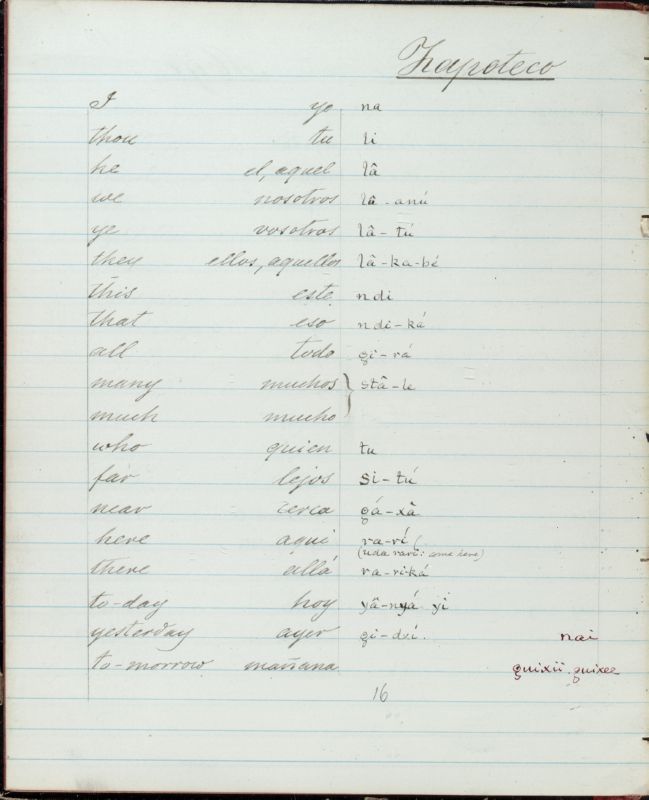 Zapoteco
I yo na
thou tu li
he el, aquel lâ
we nosotros lâ-anú
ye vosotros lâ-tú
they ellos, aquellos lâ-ka-bé
this este ndi
that eso ndi-ká
all todo gi-rá
many muchos } stâ-le
much mucho
who quien tu
far lejos si-tú
near cerca gá-xâ
here aqui ra-rí (
(uda rari: come here)
there allá ra-ri-ká
to-day hoy yâ-nyá-yi
yesterday ayer gi-dxi. nai
to-morrow mañana guixii. guixee
16